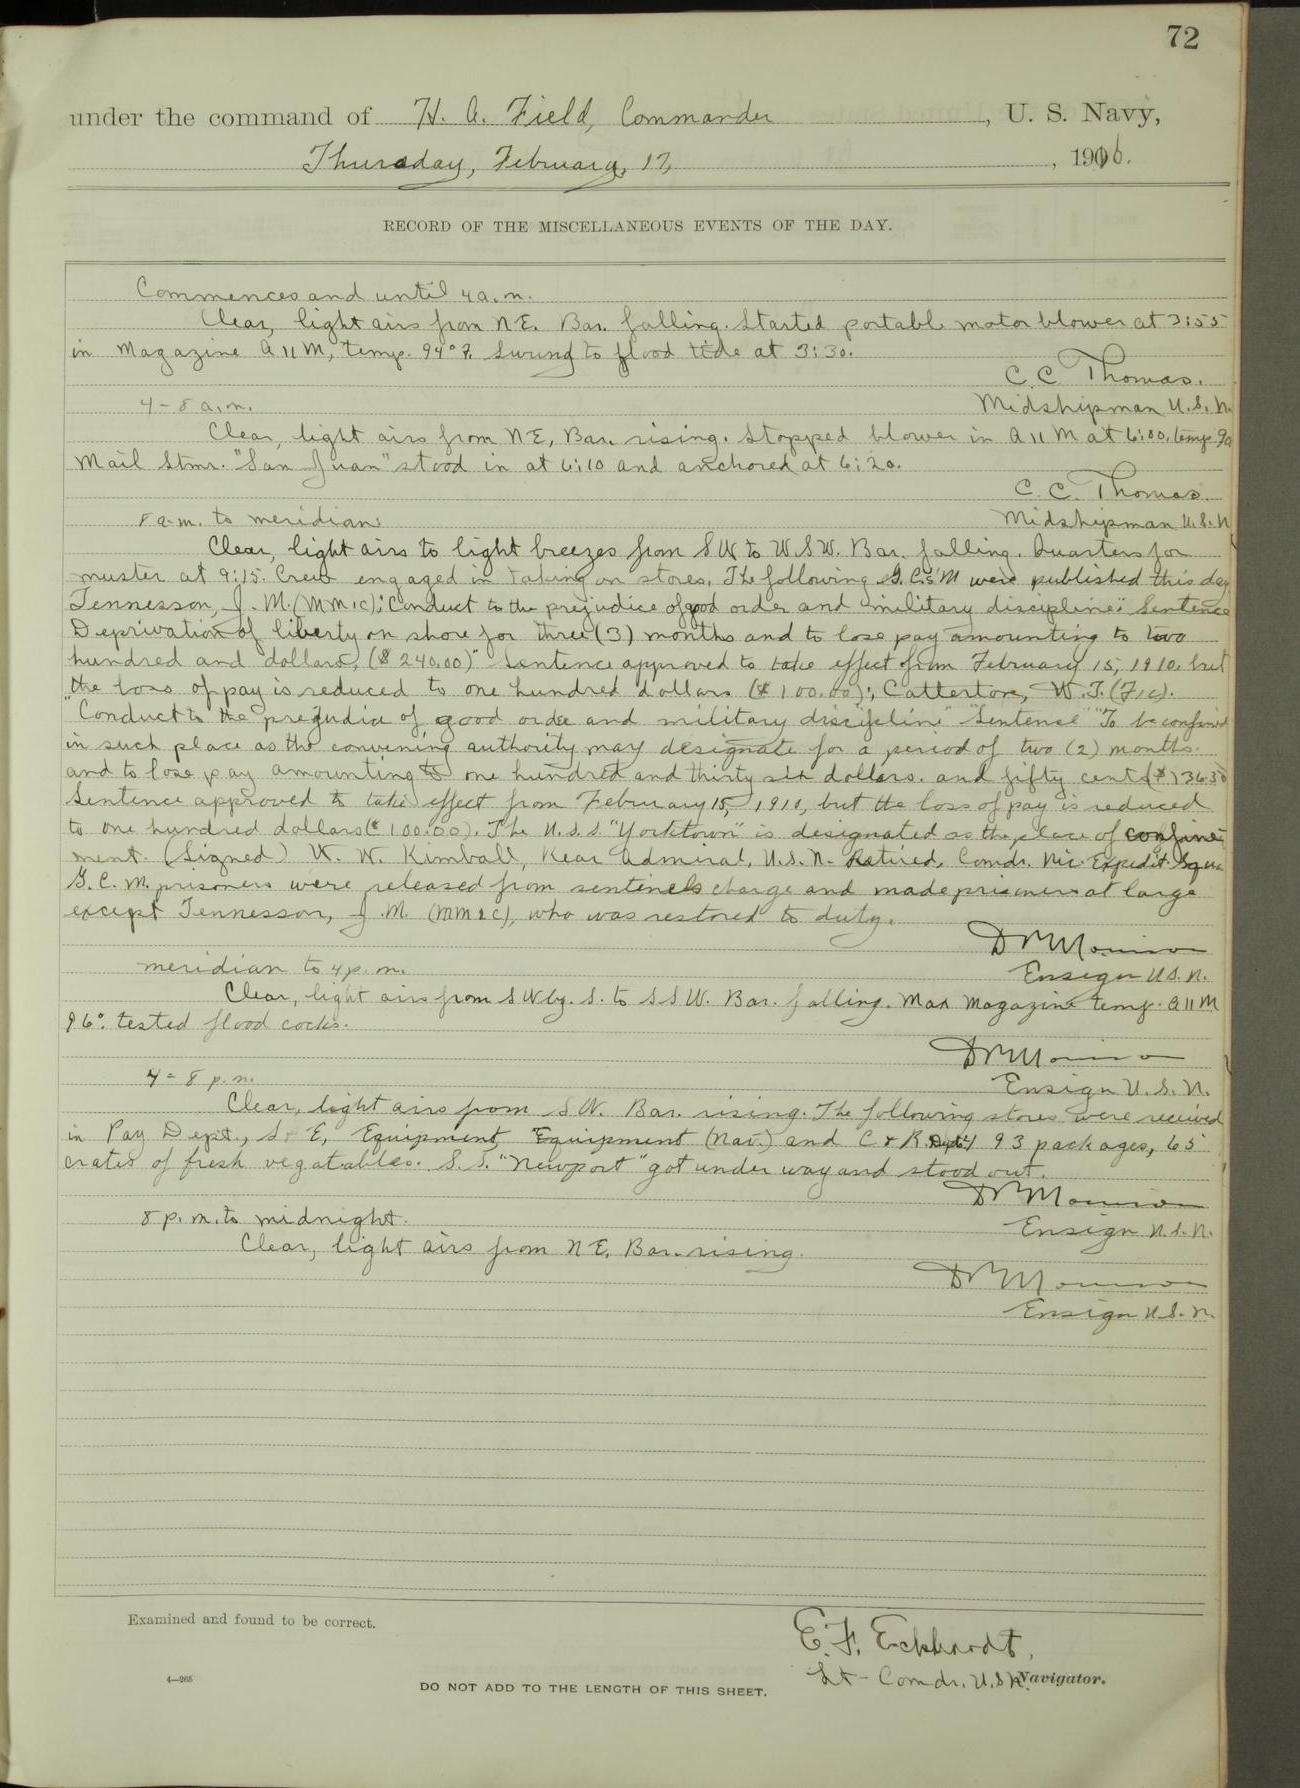 72
under the command of H. A. Field, Commander, U. S. Navy,
Thursday, February, 17, 1910.
RECORD OF THE MISCELLANEOUS EVENTS OF THE DAY.
Commences and until 4 a.m.
Clear, light airs from NE. Bar. falling. Started portable motor blower at 3:55
in Magazine A 11 M, temp. 94° F. Swung to flood tide at 3:30.
C. C. Thomas.
4 - 8 a.m.
Midshipman U.S.N.
Clear, light airs from NE, Bar. rising. Stopped blower in A 11 M at 6:00, temp. 90
Mail Stmr. "San Juan" stood in at 6:10 and anchored at 6:20.
C. C. Thomas.
8 a.m. to meridian:
Midshipman U.S.N
Clear, light airs to light breezes from SW to WSW. Bar. falling. Quarters for
muster at 9:15. Crew engaged in taking on stores. The following G.C.'s M were published this day
Tennesson, J. M. (MM1c); "Conduct to the prejudice of good order and military discipline". Sentence
Deprivation of liberty on shore for three (3) months and to lose pay amounting to two
hundred and dollars, ($ 240.00)" Sentence approved to take effect from February 15, 1910, but
the loss of pay is reduced to one hundred dollars ($ 100.00); Catterton, W. T. (F1c).
"Conduct to the prejudice of good order and military discipline" "Sentence" "To be confined
in such place as the convening authority may designate for a period of two (2) months.
and to lose pay amounting to one hundred and thirty six dollars. and fifty cents ($ 136.50
Sentence approved to take effect from February 15, 1910, but the loss of pay is reduced
to one hundred dollars ($ 100.00). The U.S.S. "Yorktown" is designated as the place of confine-
ment. (Signed) W. W. Kimball, Rear Admiral, U.S.N. Retired, Comdr. Nic. Expedit. Squa
G. C. M. prisoners were released from sentinels charge and made prisoners at large
except Tennesson, J. M. (MM1c), who was restored to duty.
meridian to 4 p.m.
Ensign U.S.N.
Clear, light airs from SW by. S. to SSW. Bar. falling. Max Magazine temp. A 11 M
96°. tested flood cocks.
4 - 8 p.m.
Ensign U.S.N.
Clear, light airs from SW. Bar. rising. The following stores were received
in Pay Dept., S & E, Equipment, Equipment (Nav.) and C & R Dept 93 packages, 65
crates of fresh vegatables. S.S. "Newport" got under way and stood out.
8 p.m. to midnight.
Ensign U.S.N.
Clear, light airs from NE. Bar. rising.
Ensign U.S.N.
Examined and found to be correct.
E. F. Eckhardt,
Lt - Comdr. U.S.N. Navigator.
4—265
DO NOT ADD TO THE LENGTH OF THIS SHEET.